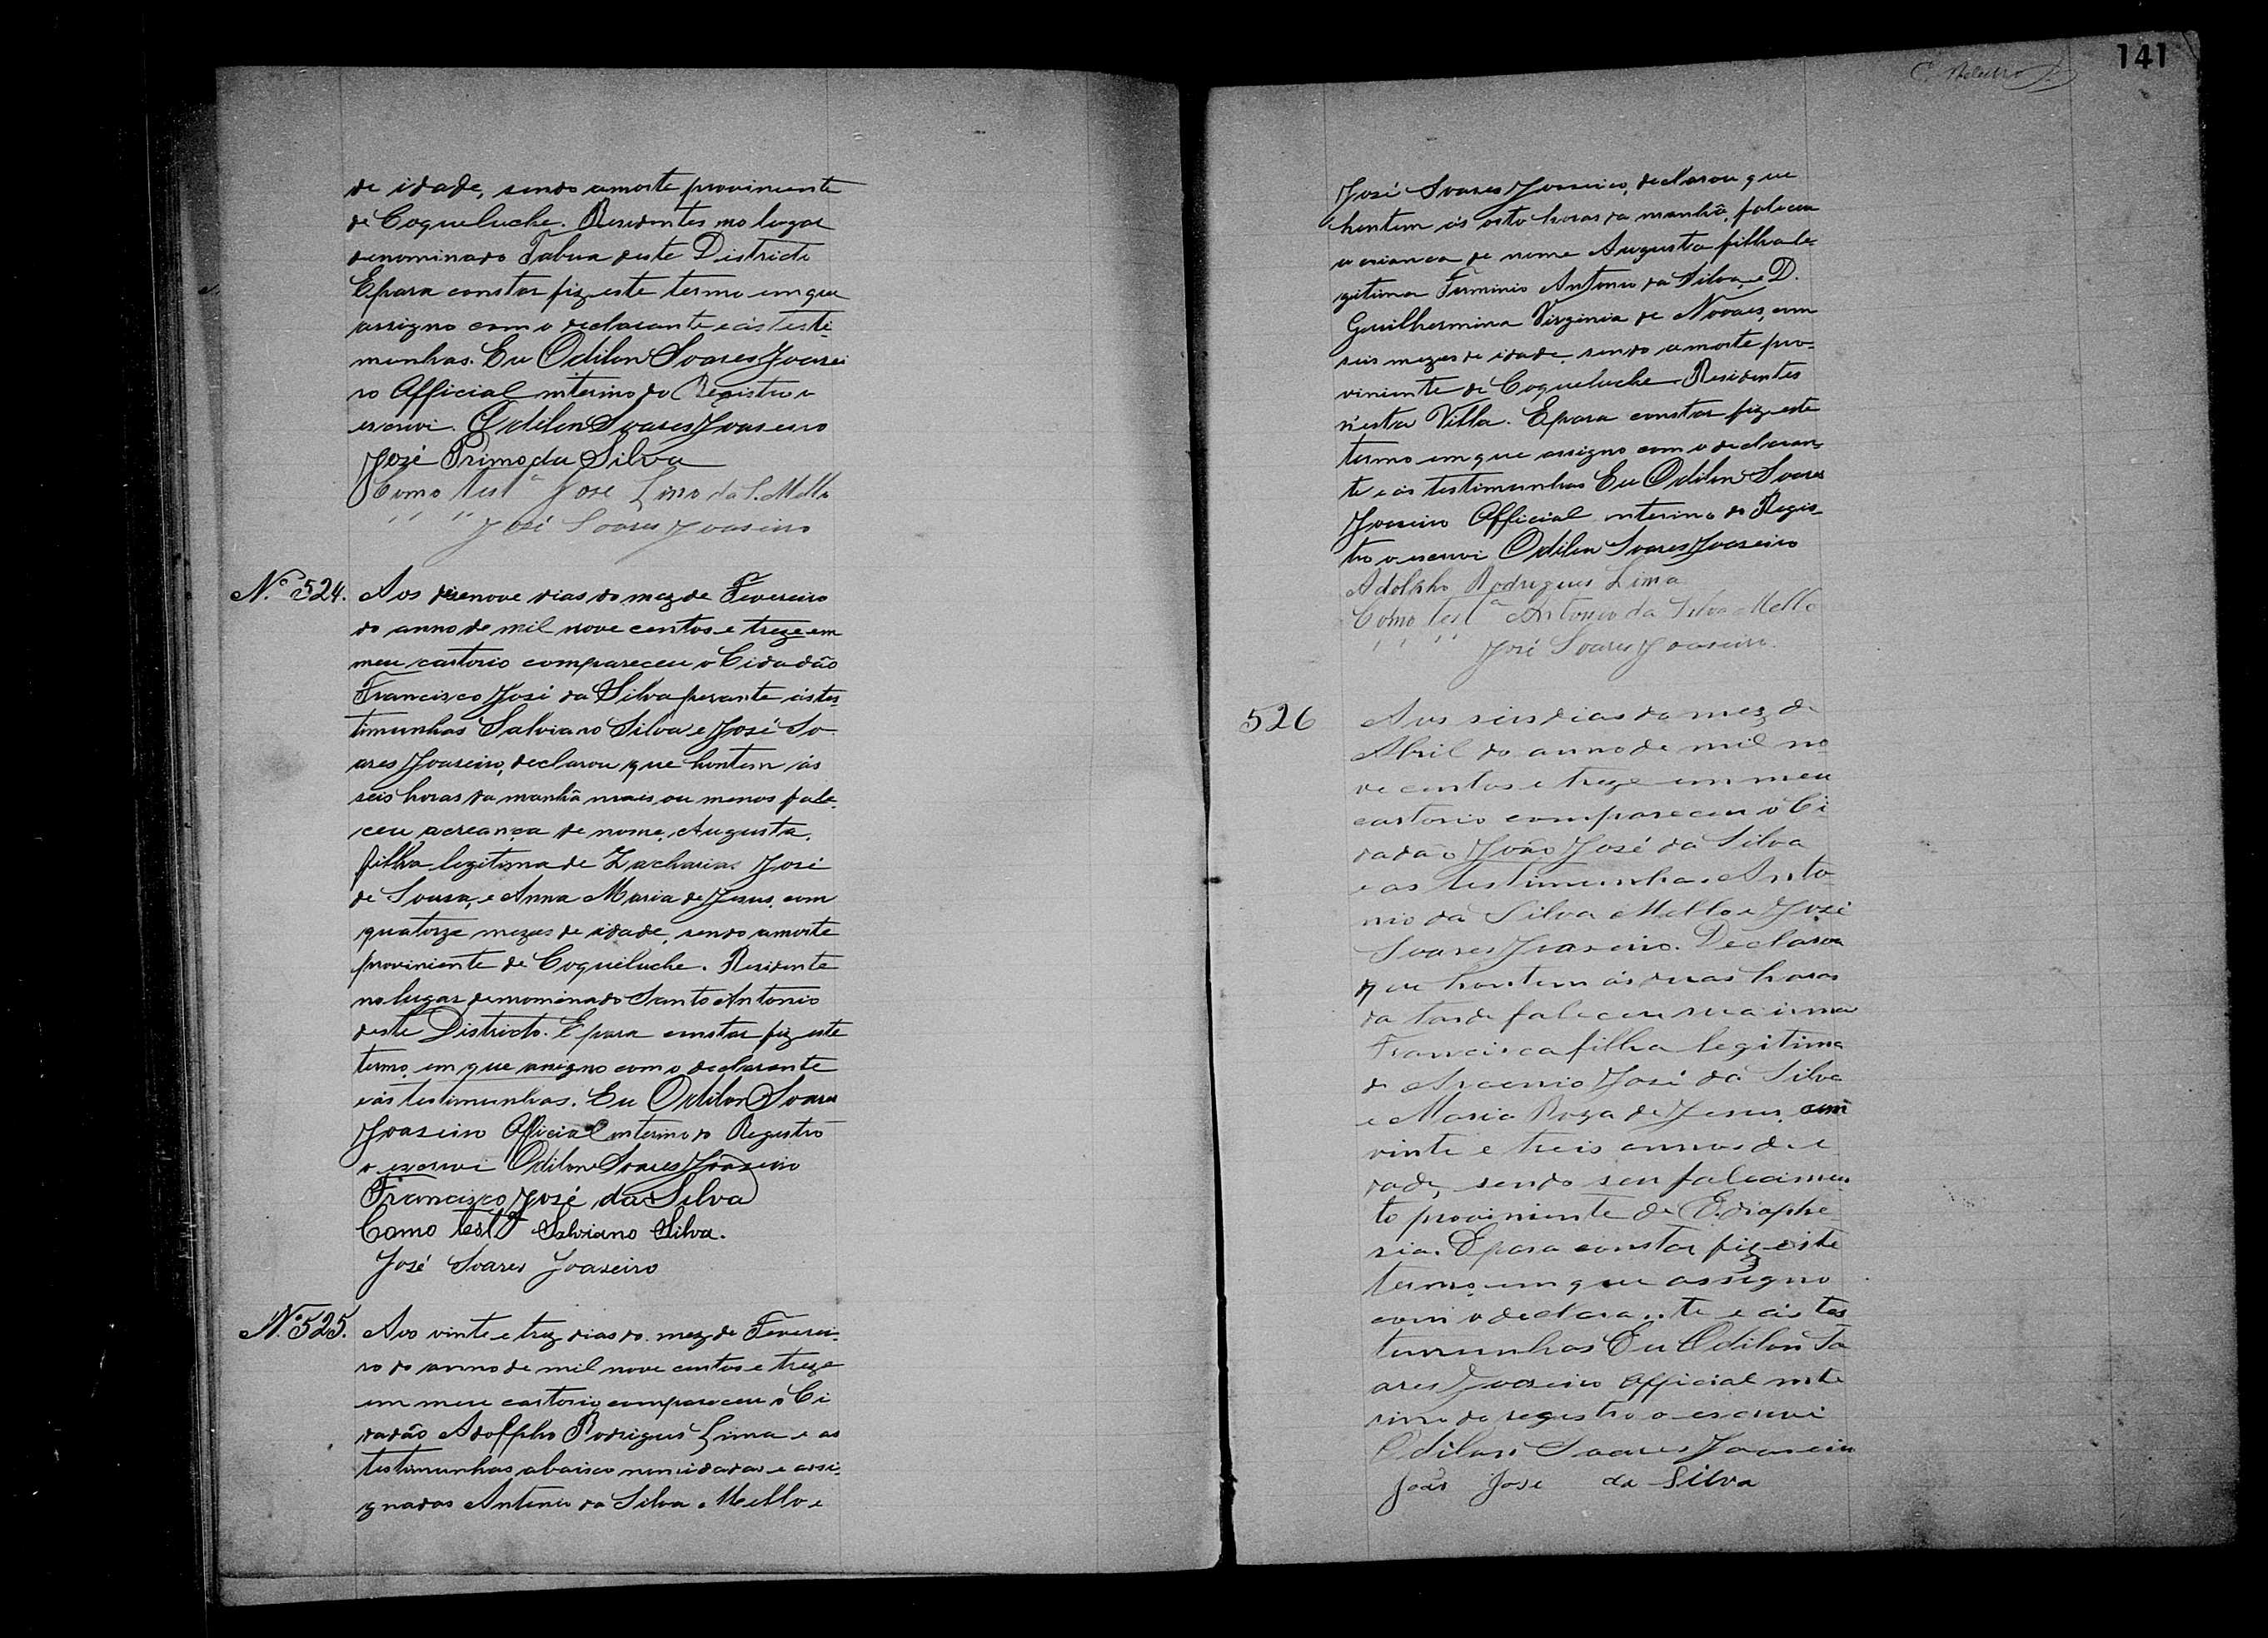 de idade, sendo a morte proviniente
de Coqueluche. Residentes no lugar
denominado Tabua deste Districto
E para constar fiz este termo em que
assigno com o declarante e ás teste
munhas. Eu Odilon Soares Joasei
ro Official interino do Registro o
escrevi. Odilon Soares Joaseiro
José Primo da Silva
Como testª José Lino da S. Mello
" " José Soares Joaseiro
Nº 524. Aos desenove dias do mez de Fevereiro
do anno de mil nove centos e treze em
meu cartorio compareceu o Cidadão
Francisco José da Silva perante ás tes
timunhas Salviano Silva e José So
ares Joaseiro, declarou que hontem ás
seis horas da manhã mais ou menos fale-
ceu a creança de nome Augusta,
filha legitima de Zacharias José
de Sousa, e Anna Maria de Jesus, com
quatorze mezes de idade, sendo a morte
proviniente de Coqueluche. Residente
no lugar denominado Santo Antonio
deste Districto. E para constar fiz este
termo em que assigno com o declarante
e ás testimunhas. Eu Odilon Soares
Joaseiro Official interino do Registro
o escrevi Odilon Soares Joaseiro
Francisco José da Silva
Como testª Salviano Silva.
José Soares Joaseiro
Nº 525. Aos vinte e trez dias do mez de Feverei-
ro do anno de mil nove centos e treze
em meu cartorio compareceu o Ci
dadão Adolpho Rodrigues Lima e as
testimunhas abaixo nomeadas e assi-
gnadas Antonio da Silva Mello e
141
José Soares Joaseiro, declarou que
hontem ás oito horas da manhã, faleceu
a crianca de nome Augusta filha le-
gitima Firminio Antonio da Silva, e D.
Guilhermina Virginia de Novaes, com
seis mezes de idade, sendo a morte pro-
viniente de Coqueluche. Residentes
n'esta Villa. E para constar fiz este
termo em que assigno com o declaran-
te e ás testimunhas Eu Odilon Soares
Joaseiro Official interino do Regis-
tro o escrevi Odilon Soares Joaseiro
Adolpho Rodrigues Lima
Como testª Antonio da Silva Mello
" " José Soares Joaseiro.
526 Aos seis dias do mez de
Abril do anno de mil no
ve centos e treze em meu
cartorio compareceu o Ci
dadão João José da Silva
e as testimunhas Anto
nio da Silva Mello e José
Soares Joaseiro. Declarou
que hontem ás duas horas
da tarde faleceu sua irmã
Francisca filha legitima
de Arcenio José da Silva
e Maria Roza de Jesus, com
vinte e treis annos de i
dade, sendo seu falecimen
to proviniente de
E para constar fiz este
termo em que assigno
com o declarante e ás tes
timunhas Eu Odilon So
ares Joaseiro Official inte
rino do registro o escrevi
Odilon Soares Joaseiro
João José da Silva